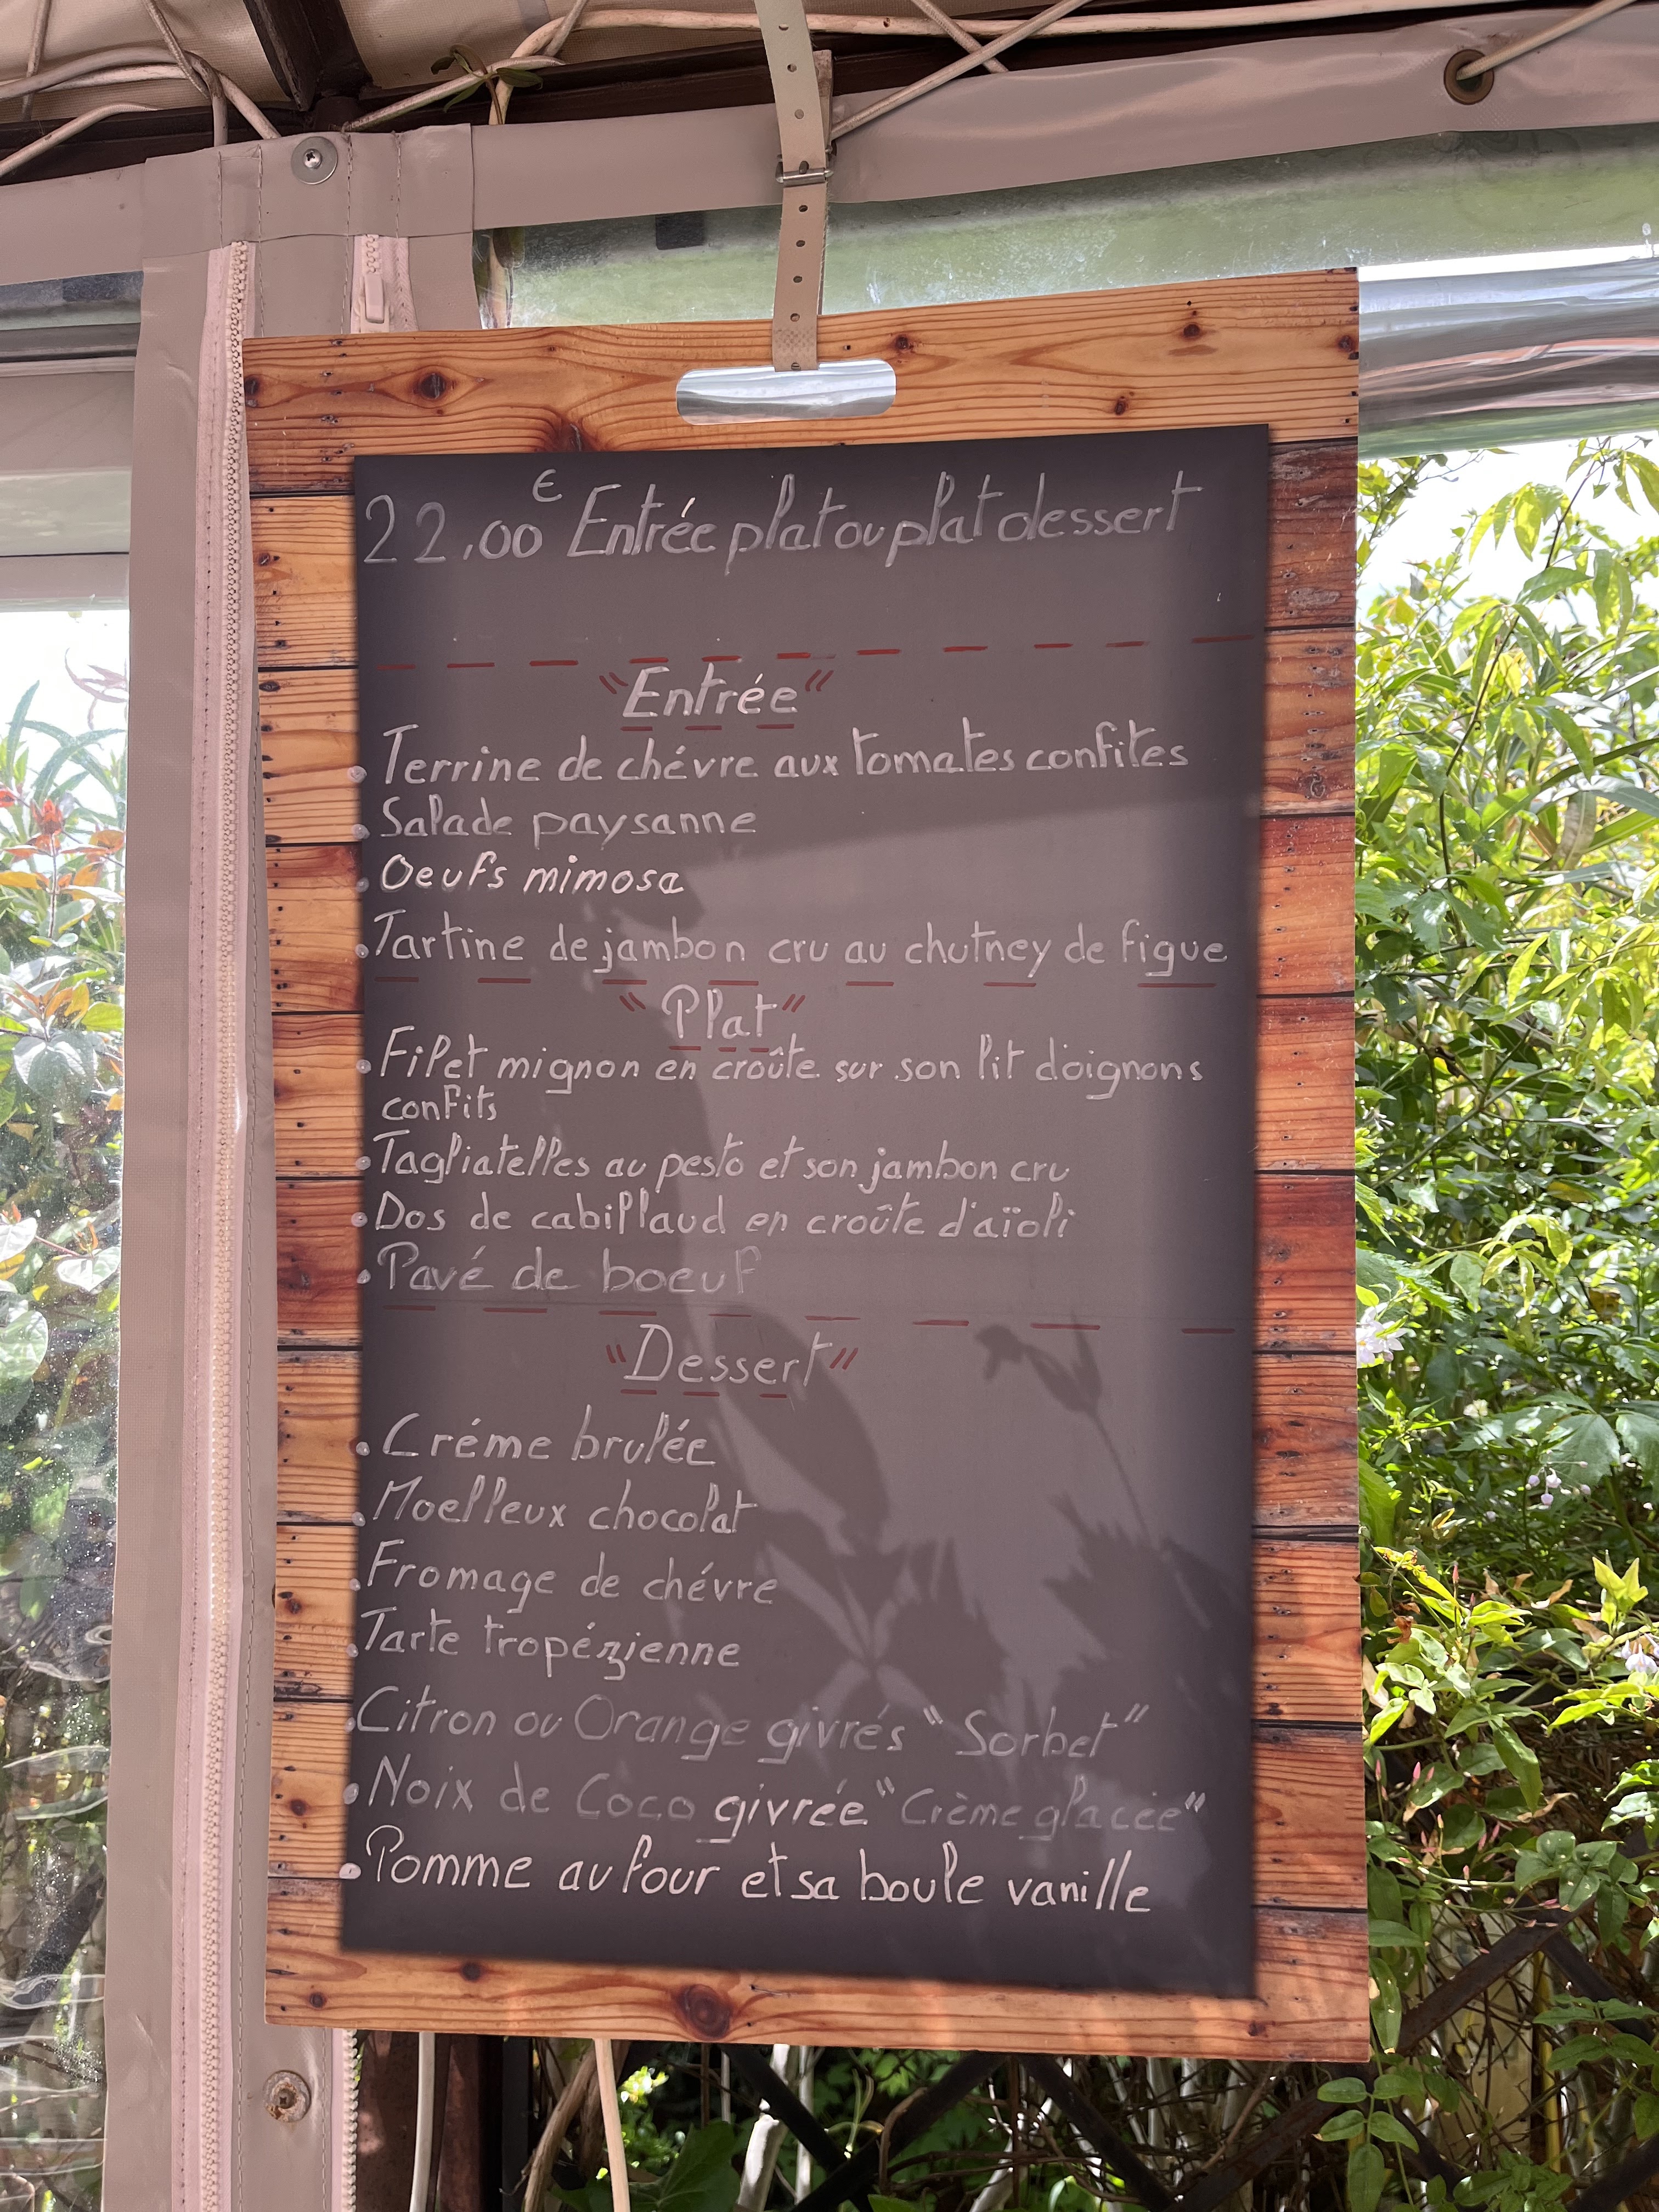 22,00€ Entrée plat ou plat dessert
"Entrée"
• Terrine de chévre aux tomates confites
• Salade paysanne
• Oeufs mimosa
• Tartine de jambon cru au chutney de figue
"Plat"
• Filet mignon en croûte sur son lit d'oignons
confits
• Tagliatelles au pesto et son jambon cru
• Dos de cabillaud en croûte d'aïoli
• Pavé de boeuf
"Dessert"
• Créme brulée
• Moelleux chocolat
• Fromage de chévre
• Tarte tropézienne
• Citron ou Orange givrés "Sorbet"
• Noix de Coco givrée "Crème glacée"
• Pomme au four et sa boule vanille